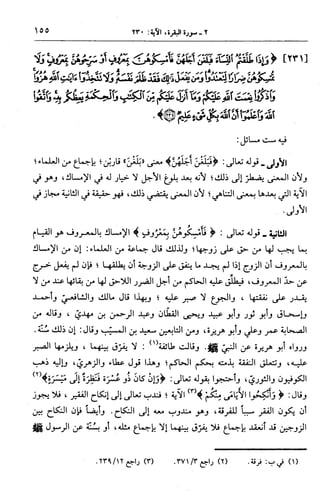 ٢ - سورة البقرة، الآية: ٢٣٠
١٥٥
[٢٣١] ﴿ وَإِذَا طَلَّقْتُمُ النِّسَاءَ فَبَلَغْنَ أَجَلَهُنَّ فَأَمْسِكُوهُنَّ بِمَعْرُوفٍ أَوْ سَرِّحُوهُنَّ بِمَعْرُوفٍ وَلَا
تُمْسِكُوهُنَّ ضِرَارًا لِّتَعْتَدُوا وَمَن يَفْعَلْ ذَٰلِكَ فَقَدْ ظَلَمَ نَفْسَهُ وَلَا تَتَّخِذُوا آيَاتِ اللَّهِ هُزُوًا
وَاذْكُرُوا نِعْمَتَ اللَّهِ عَلَيْكُمْ وَمَا أَنزَلَ عَلَيْكُم مِّنَ الْكِتَابِ وَالْحِكْمَةِ يَعِظُكُم بِهِ وَاتَّقُوا
اللَّهَ وَاعْلَمُوا أَنَّ اللَّهَ بِكُلِّ شَيْءٍ عَلِيمٌ ﴾.
فيه ست مسائل:
الأولى - قوله تعالى: ﴿فَبَلَغْنَ أَجَلَهُنَّ﴾ معنى «بَلَغْنَ» قاربن؛ بإجماع من العلماء؛
ولأن المعنى يضطرّ إلى ذلك؛ لأنه بعد بلوغ الأجل لا خيار له في الإمساك، وهو في
الآية التي بعدها بمعنى التناهي؛ لأن المعنى يقتضي ذلك، فهو حقيقة في الثانية مجاز في
الأولى.
الثانية - قوله تعالى: ﴿ فَأَمْسِكُوهُنَّ بِمَعْرُوفٍ ﴾ الإمساك بالمعروف هو القيام
بما يجب لها من حق على زوجها؛ ولذلك قال جماعة من العلماء: إن من الإمساك
بالمعروف أن الزوج إذا لم يجد ما ينفق على الزوجة أن يطلقها ؛ فإن لم يفعل خرج
عن حدّ المعروف، فيطلّق عليه الحاكم من أجل الضرر اللاحق لها من بقائها عند من لا
يقدر على نفقتها ، والجوع لا صبر عليه ؛ وبهذا قال مالك والشافعيّ وأحمد
وإسحاق وأبو ثور وأبو عبيد ويحيى القطان وعبد الرحمن بن مهديّ ، وقاله من
الصحابة عمر وعليّ وأبو هريرة، ومن التابعين سعيد بن المسيّب وقال: إن ذلك سُنّة.
ورواه أبو هريرة عن النبيّ ﷺ. وقالت طائفة(١): لا يفرّق بينهما ، ويلزمها الصبر
عليه، وتتعلق النفقة بذمته بحكم الحاكم؛ وهذا قول عطاء والزهريّ، وإليه ذهب
الكوفيون والثوريّ، واحتجوا بقوله تعالى: ﴿وَإِن كَانَ ذُو عُسْرَةٍ فَنَظِرَةٌ إِلَىٰ مَيْسَرَةٍ﴾(٢)
وقال: ﴿ وَأَنكِحُوا الْأَيَامَىٰ مِنكُمْ ﴾(٣) الآية ؛ فندب تعالى إلى إنكاح الفقير ، فلا يجوز
أن يكون الفقر سبباً للفرقة، وهو مندوب معه إلى النكاح. وأيضاً فإن النكاح بين
الزوجين قد انعقد بإجماع فلا يفرّق بينهما إلا بإجماع مثله، أو بسُنّة عن الرسول ﷺ
(١) في ب: فرقة. (٢) راجع ٣٧١/٣. (٣) راجع ٢٣٩/١٢.